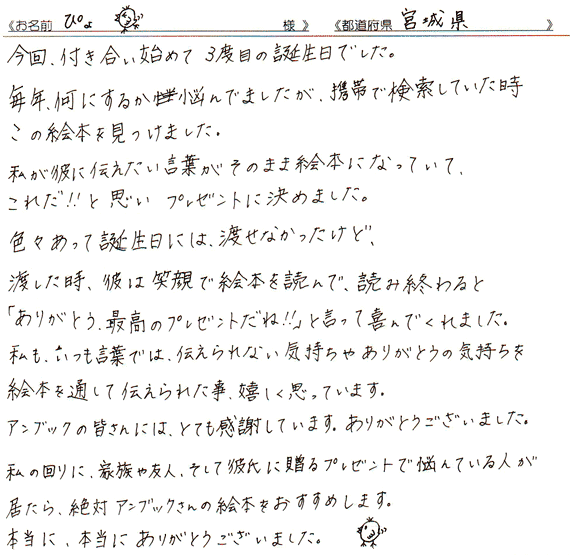 《お名前 ぴよ 様 》 《都道府県 宮城県 》
今回、付き合い始めて 3度目の誕生日でした。
毎年、何にするか悩んでましたが、携帯で検索していた時
この絵本を見つけました。
私が彼に伝えたい言葉がそのまま絵本になっていて、
これだ!!と思い プレゼントに決めました。
色々あって誕生日には、渡せなかったけど、
渡した時、彼は笑顔で絵本を読んで、読み終わると
「ありがとう、最高のプレゼントだね!!」と言って喜んでくれました。
私も、いつも言葉では、伝えられない気持ちやありがとうの気持ちを
絵本を通して伝えられた事、嬉しく思っています。
アンブックの皆さんには、とても感謝しています。ありがとうございました。
私の回りに、家族や友人、そして彼氏に贈るプレゼントで悩んでいる人が
居たら、絶対アンブックさんの絵本をおすすめします。
本当に、本当にありがとうございました。